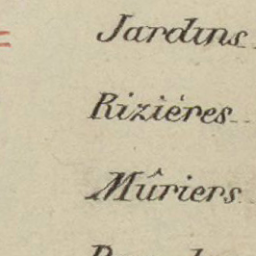 Jardins
Riziéres
Mûriers